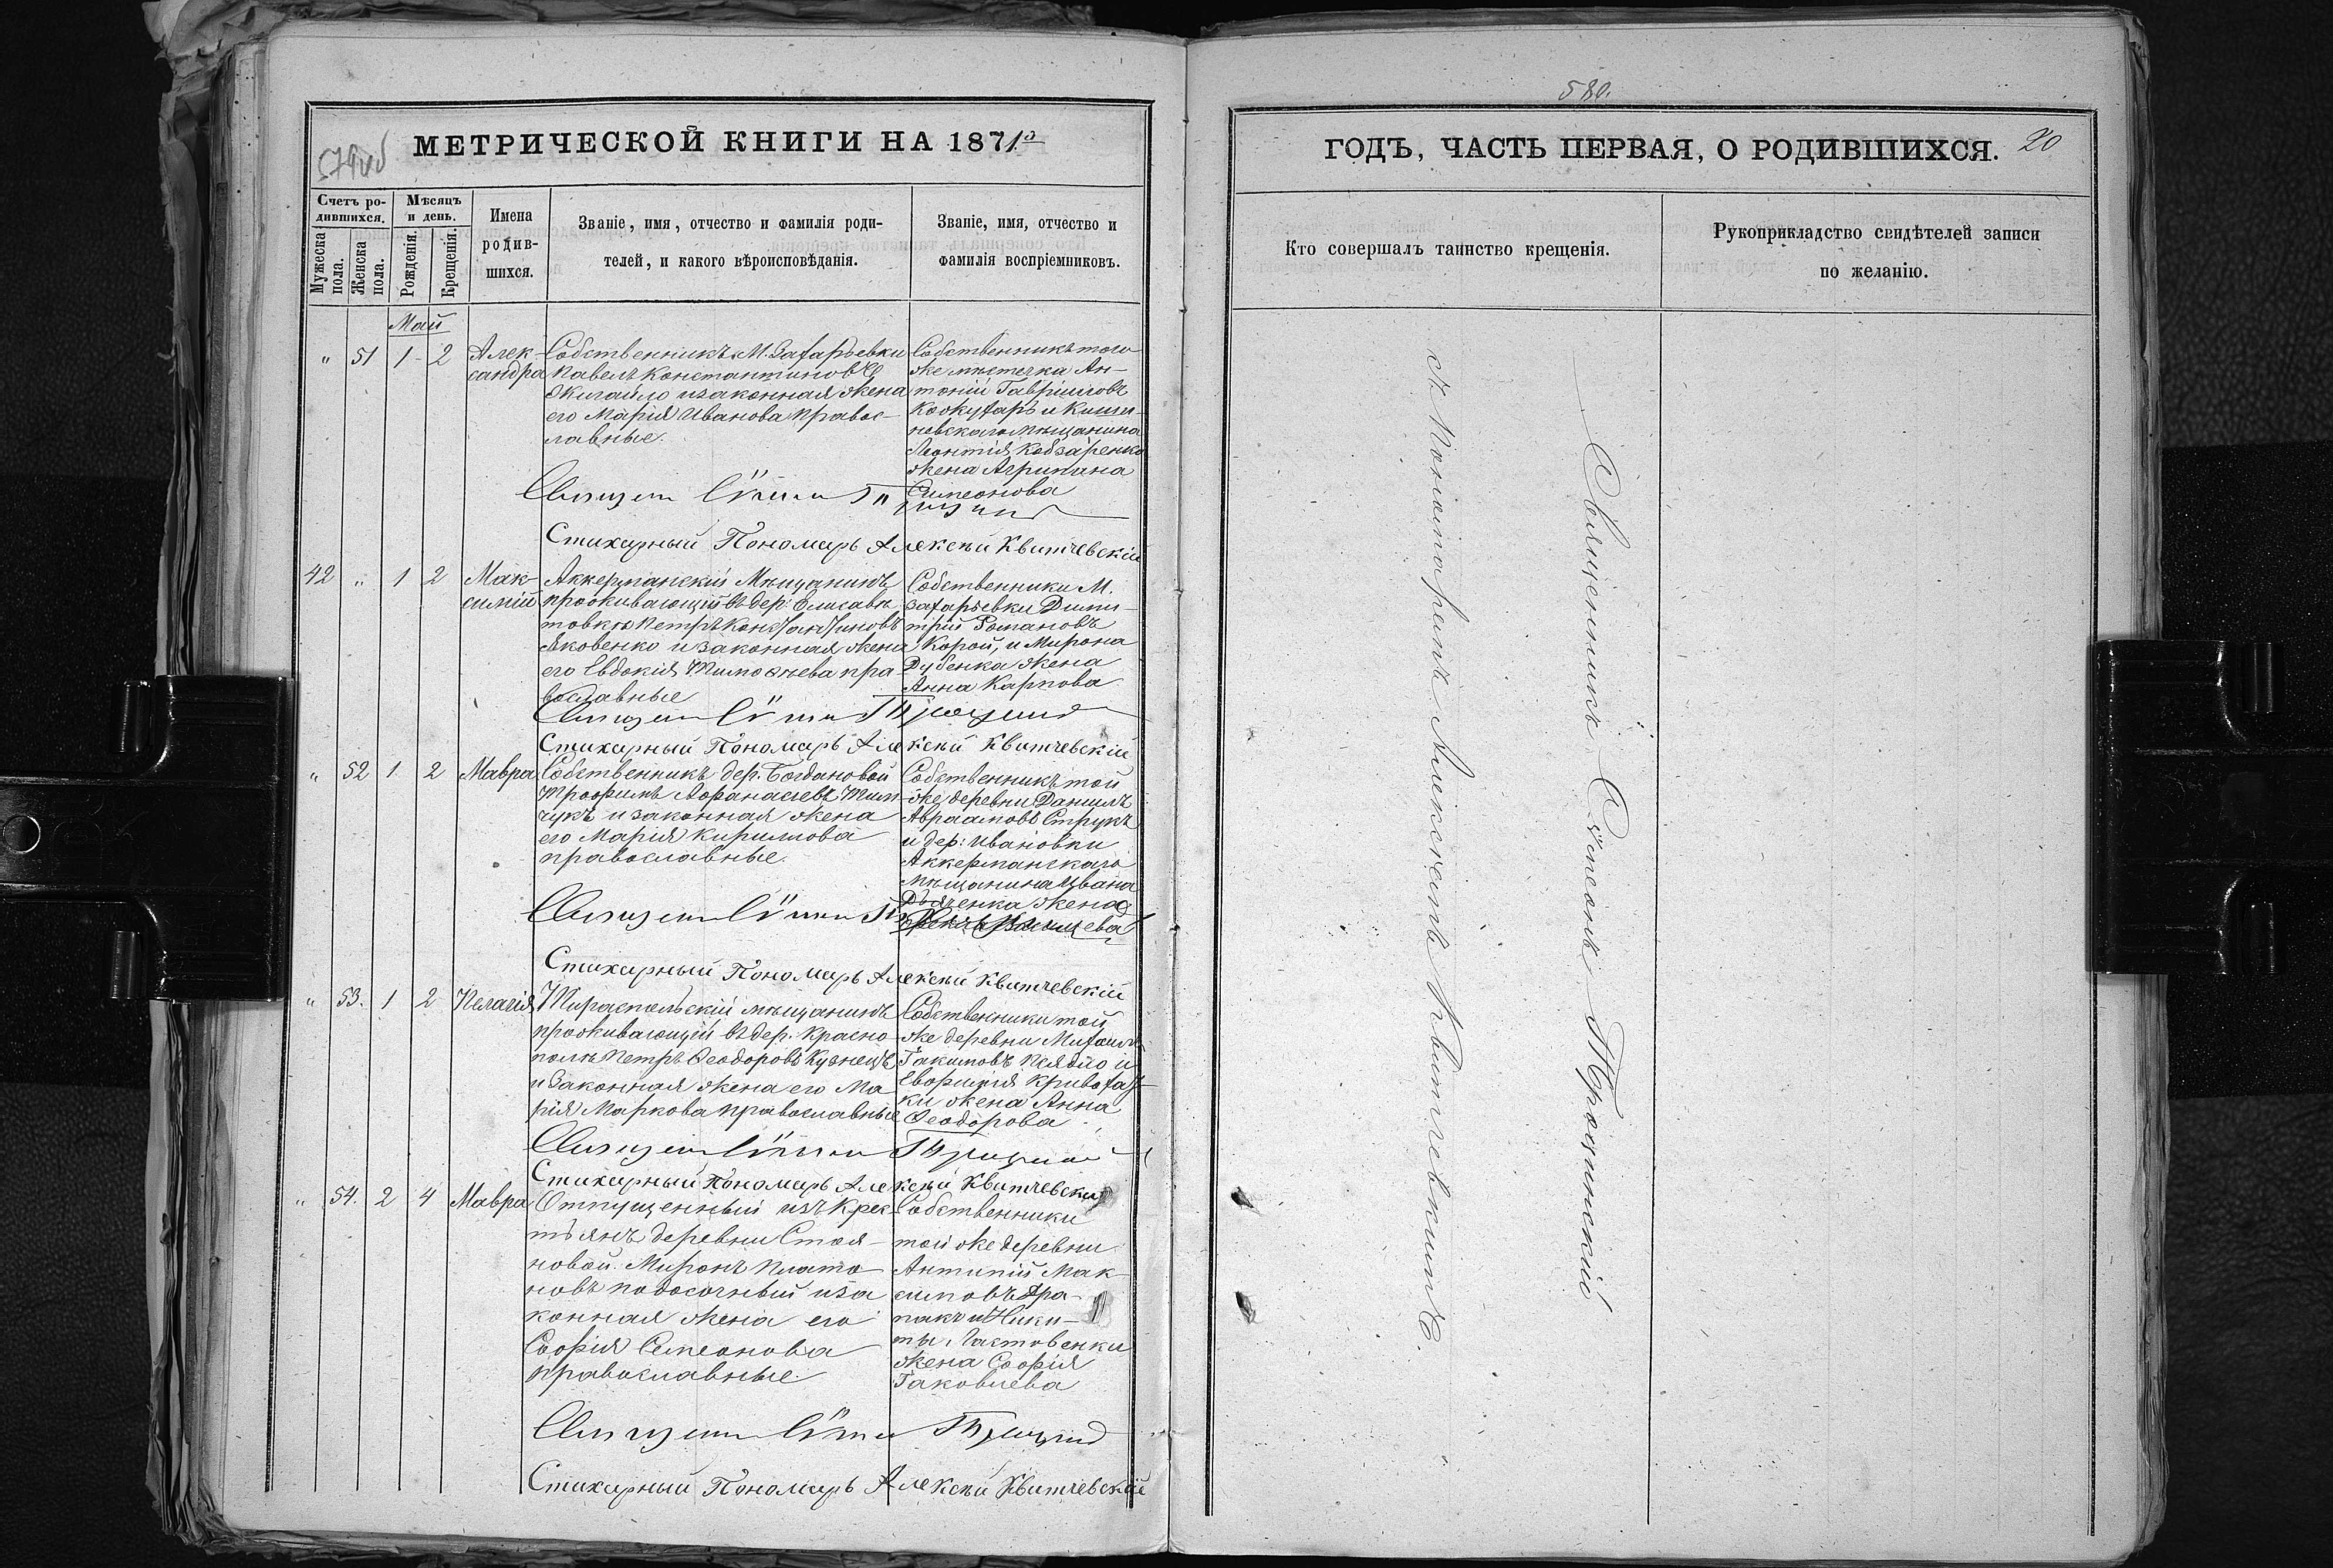 МЕТРИЧЕСКОЙ КНИГИ НА 1871
Счетъ ро-
дившихся.
Мужеска
пола.
Женска
пола.
Мѣсяцъ
и день.
Рожденія.
Крещенія.
Имена
родив-
шихся.
Званіе, имя, отчество и фамилія роди-
телей, и какого вѣроисповѣданія.
Званіе, имя, отчество и
фамилія воспріемниковъ.
Май
" 51 1 - 2
Алек-
сандра
Собственникъ М. Захарьевки
Павелъ Константиновъ
и законная жена
его Марія Иванова правос-
лавные.
Собственникъ того
же мѣстечка Ан-
тоній Гавріиловъ
Кожухарь и Киши-
невскаго мѣщанина
Леонтія Кобзаренко
жена Агрипина
Симеонова
Стихарный Пономарь Алексѣй Квитчевскій
42 " 1 2
Мак-
симій
Аккерманскій Мѣщанинъ
проживающій въ дер: Елисаве
товкѣ Петръ Константиновъ
Яковенко и законная жена
его Евдокія Тимоѳеева пра
вославные
Собственники М.
Захарьевки Дими-
трій Романовъ
Корой, и Мирона
Дубенка жена
Анна Карпова
Стихарный Пономарь Алексѣй Квитчевскій
" 52 1 2
Мавра
Собственникъ дер. Богдановой
Трофимъ Аѳанасіевъ Тим-
чукъ и законная жена
его Марія Кирилова
православные.
Собственникъ той
же деревни Даніилъ
Авраамовъ Струкъ
и дер: Ивановки
Аккерманскаго
Мѣщанина Ивана
Дьяченка жена
Стихарный Пономарь Алексѣй Квитчевскій
" 53. 1 2
Пелагія
Тираспольскій мѣщанинъ
проживающій въ дер. Красно
полѣ Петръ Ѳеодоровъ Кузнецъ
и законная жена его Ма
рія Маркова православные
Собственники той
же деревни Михаилъ
Іакимовъ и
жена Анна
Ѳеодорова
Стихарный Пономарь Алексѣй Квитчевскій
" 54. 2 4
Мавра
Отпущенный изъ крес
тьянъ деревни Стоя-
новой Миронъ Плато
новъ и за
конная жена его
Софія Симеонова
православные.
Собственники
той же деревни
Антипій Мак-
симовъ Дра-
пакъ и Ники-
ты
жена Софія
Іаковлева
Стихарный Пономарь Алексѣй Квитчевскій
580.
ГОДЪ, ЧАСТЬ ПЕРВАЯ, О РОДИВШИХСЯ.
20
Кто совершалъ таинство крещенія.
Рукоприкладство свидѣтелей записи
по желанію.
Священникъ Стефанъ
съ Пономаремъ Алексѣемъ Квитчевскимъ.